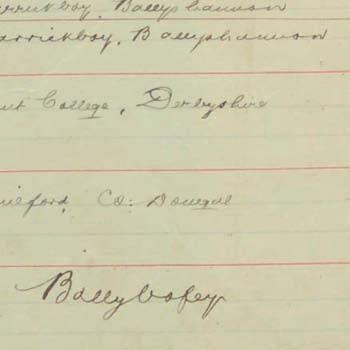 Ballyshannon
arrickboy, Ballyshannon
nt College, Derbyshire
Co: Donegal
Ballybofey